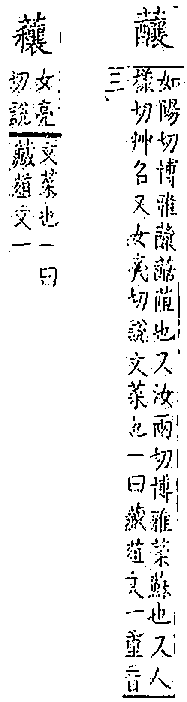 䖆
如陽切博雅葅也又汝兩切博雅菜蘇也又人
樣切艸名又女亮切說文菜也一曰藏葅文一重音
三
女亮
切說
文菜也一曰
藏葅文一